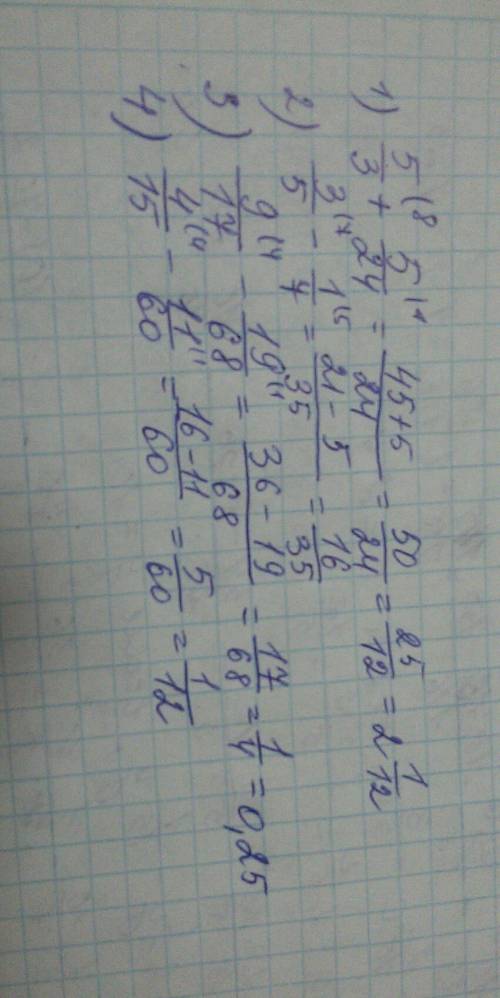 1) 5/3 (8 + 5/24 (1 = 45+5/24 = 50/24 = 25/12 = 2 1/12
2) 3/5 (7 − 1/7 (5 = 21-5/35 = 16/35
3) 9/17 (4 − 19/68 (1 = 36-19/68 = 17/68 = 1/4 = 0,25
4) 4/15 (4 − 11/60 (1 = 16-11/60 = 5/60 = 1/12